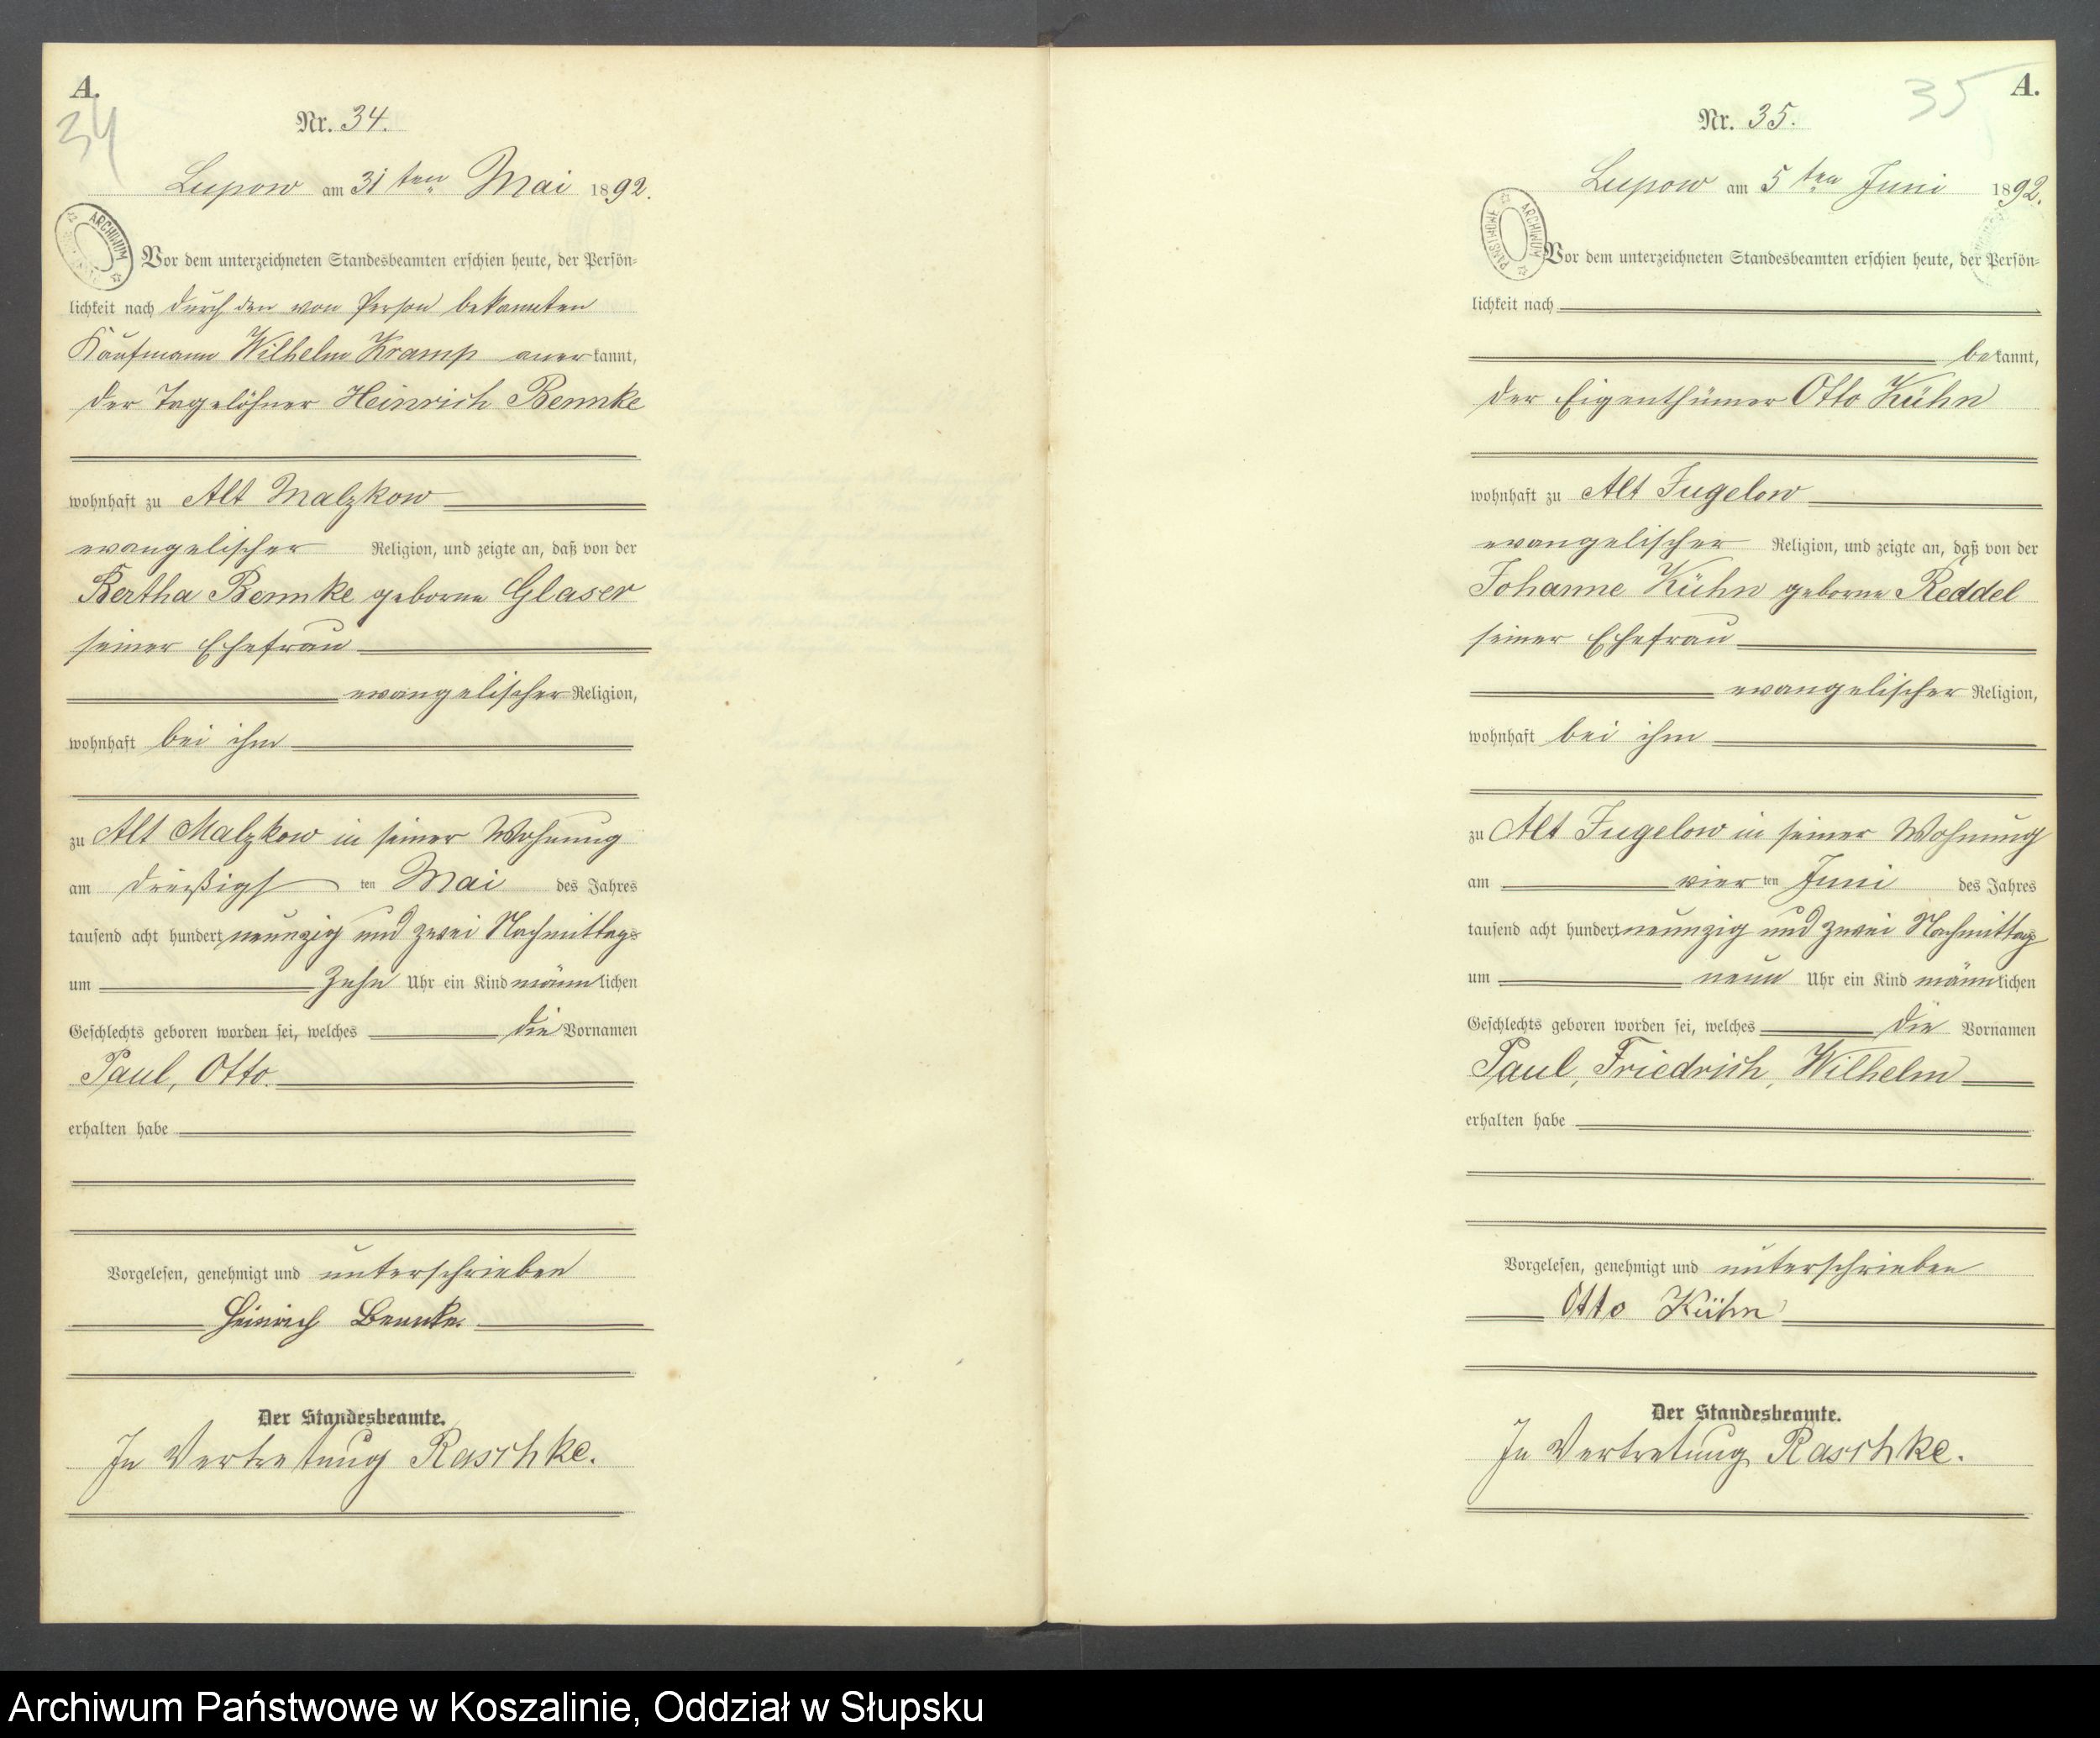 A.
34
Nr. 34.
Lupow am 31 ten Mai 1892.
ARCHIWUM
Vor dem unterzeichneten Standesbeamten erschien heute, der Persön-
lichkeit nach durch den von Person bekannten
Kaufmann Wilhelm Kramp anerkannt,
der Tagelöhner Heinrich Bennke
wohnhaft zu Alt Malzkow
evangelischer Religion, und zeigte an, daß von der
Bertha Bennke geborne Glaser
seiner Ehefrau
evangelischer Religion,
wohnhaft bei ihm
zu Alt Malzkow in seiner Wohnung
am dreißigsten Mai des Jahres
tausend acht hundert neunzig und zwei Nachmittags
um zehn Uhr ein Kind männlichen
Geschlechts geboren worden sei, welches die Vornamen
Paul, Otto.
erhalten habe
Vorgelesen, genehmigt und unterschrieben
Heinrich Bennke
Der Standesbeamte.
In Vertretung Raschke.
A.
35
Nr. 35.
Lupow am 5 ten Juni 1892.
ARCHIWUM PAŃSTWOWE
Vor dem unterzeichneten Standesbeamten erschien heute, der Persön-
lichkeit nach
bekannt,
der Eigenthümer Otto Kühn
wohnhaft zu Alt Jugelow
evangelischer Religion, und zeigte an, daß von der
Johanne Kühn geborne Reddel
seiner Ehefrau
evangelischer Religion,
wohnhaft bei ihm
zu Alt Jugelow in seiner Wohnung
am vierten Juni des Jahres
tausend acht hundert neunzig und zwei Nachmittags
um neun Uhr ein Kind männlichen
Geschlechts geboren worden sei, welches die Vornamen
Paul, Friedrich, Wilhelm
erhalten habe
Vorgelesen, genehmigt und unterschrieben
Otto Kühn
Der Standesbeamte.
In Vertretung Raschke.
Archiwum Państwowe w Koszalinie, Oddział w Słupsku